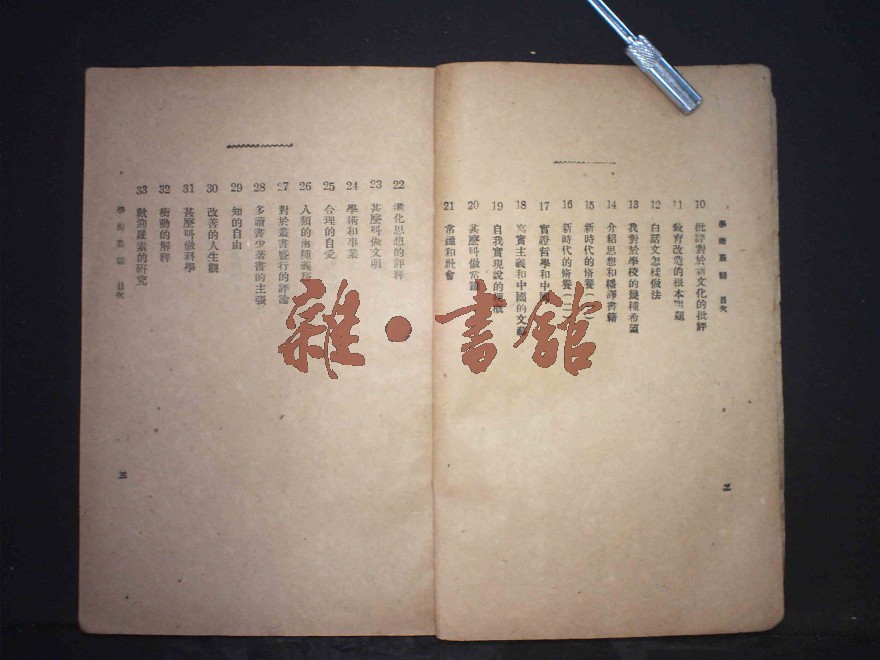 學術叢話 目次
10 批評對於新文化的批評
11 教育改造的根本問題
12 白話文怎樣做法
13 我對於學校的幾種希望
14 介紹思想和繙譯書籍
15 新時代的脩養(一)
16 新時代的脩養(二)
17 實證哲學和中國
18 寫實主義和中國的文藝
19 自我實現說的
20 甚麼叫做常識
21 常識和社會
二
22 進化思想的評釋
23 甚麼叫做文明
24 學術和事業
25 合理的自愛
26 人類的兩種義務
27 對於叢書盛行的評論
28 多讀書少著書的主張
29 知的自由
30 改善的人生觀
31 甚麼叫做科學
32 衝動的解釋
33 歡迎羅素的研究
學術叢話 目次
三
雜·書館